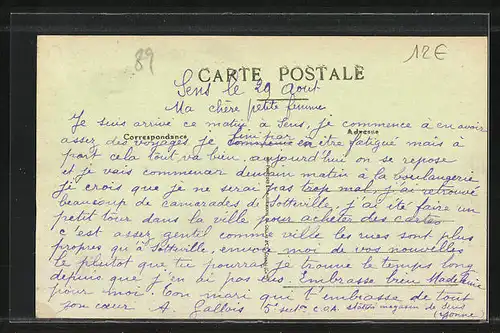 89
12€
CARTE POSTALE
Sens le 29 aout
Ma chère petite femme
Je suis arrivé ce matin à Sens, je commence à en avoir
Correspondance
Adresse
assez des voyages je fini par en être fatigué mais à
part cela tout va bien. aujourd'hui on se repose
et je vais commencer demain matin à la boulangerie
je crois que je ne serai pas trop mal, j'ai retrouvé
beaucoup de camarades de Sotteville, j'ai été faire un
petit tour dans la ville pour acheter des cartes
c'est assez gentel comme ville les rues sont plus
propres qu'à Sotteville, envois moi de vos nouvelles
le plutot que tu pourras je trouve le temps long
depuis que j'en ai pas eus. Embrasse bien Madeleine
pour moi. Ton mari qui t'embrasse de tout
son cœur A Gallois 5e sect. C.O.A. station magasin de Sens
(Yonne)